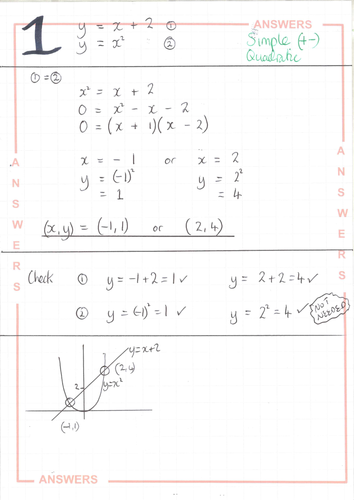 1
y = x + 2 ①
y = x² ②
ANSWERS
Simple (+-)
Quadratic
① = ②
x² = x + 2
0 = x² - x - 2
0 = (x + 1)(x - 2)
x = -1 or x = 2
y = (-1)² y = 2²
= 1 = 4
(x,y) = (-1,1) or (2,4)
ANSWERS
ANSWERS
Check ① y = -1+2 = 1 ✓ y = 2+2 = 4 ✓
② y = (-1)² = 1 ✓ y = 2² = 4 ✓
NOT
NEEDED
y=x+2
(2,4)
y=x²
2
(-1,1)
ANSWERS